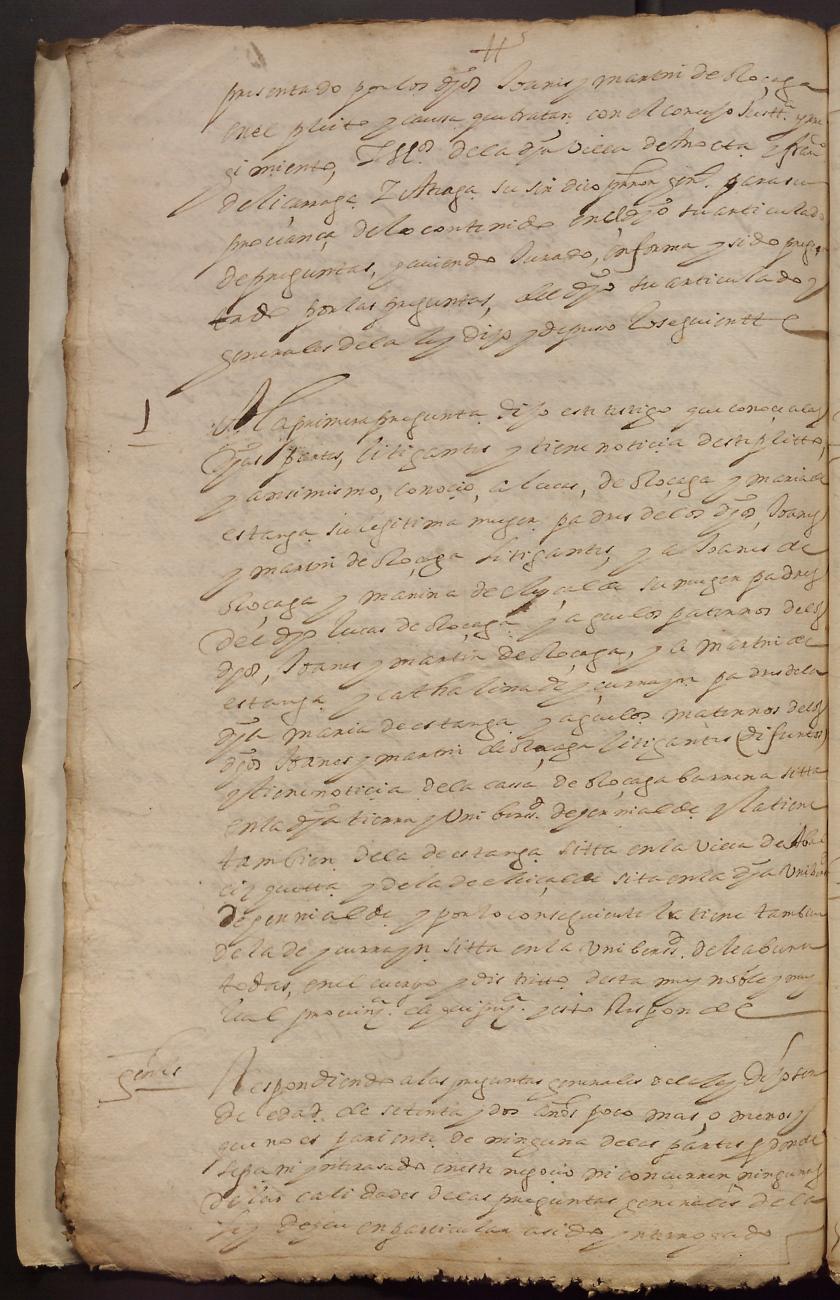 presentado por los dhos Joanes y martin de Roçaga
en el pleito y causa que tratan con el concejo Justª y Re
gimiento, de la dha villa de hocta y franco
de licarraga su sindico prior genl. para su
provança de lo contenido en el dho su articulado
de preguntas, y aviendo Jurado, en forma y sido pregun
tado por las preguntas, del dho su articulado y
generales de la ley dixo y depuso lo seguiente
1 A la primera pregunta dixo este testigo que conoçe a las
dhas partes, litigantes y tiene noticia deste plitto,
y ansimismo, conoçio, a lucas, de Roçaga y maria de
estanga su legitima muger padres de los dhos, Joanes
y martin de Roçaga litigantes, y a Joanes de
Roçaga y marina de eliçalde su muger padres
del dho lucas de Roçaga y aguelos paternos de los
dhos, Joanes y martin de Roçaga, y a martin de
estanga y cathalina de ycurrayn padres de la
dha maria de estanga y aguelos maternos de los
dhos Joanes y martin de Roçaga litigantes (difuntos)
y tiene noticia de la cassa de Roçaga barrena sitta
en la dha tierra y Unibersd. de hernialde y la tiene
tambien de la de estanga sitta en la villa de Albiz
cizquetta y de la de eliçalde sita en la dha Unibersd
de hernialde y por lo conseguiente la tiene tambien
de la de ycurrayn sitta en la Unibersd. de leaburu
todas, en el cuerpo y distritto desta muy noble y muy
leal provinçª. de guipuzª. y esto Responde
genles Respondiendo a las preguntas generales de la ley dixo ser
de edad de setenta y dos años poco mas, o menos y
que no es pariente de ninguna de las partes que donde
sepa ni ynteresado en este negocio ni concurren ningunas
de las calidades de las preguntas generales de la
ley de que en particular a sido ynterrogado